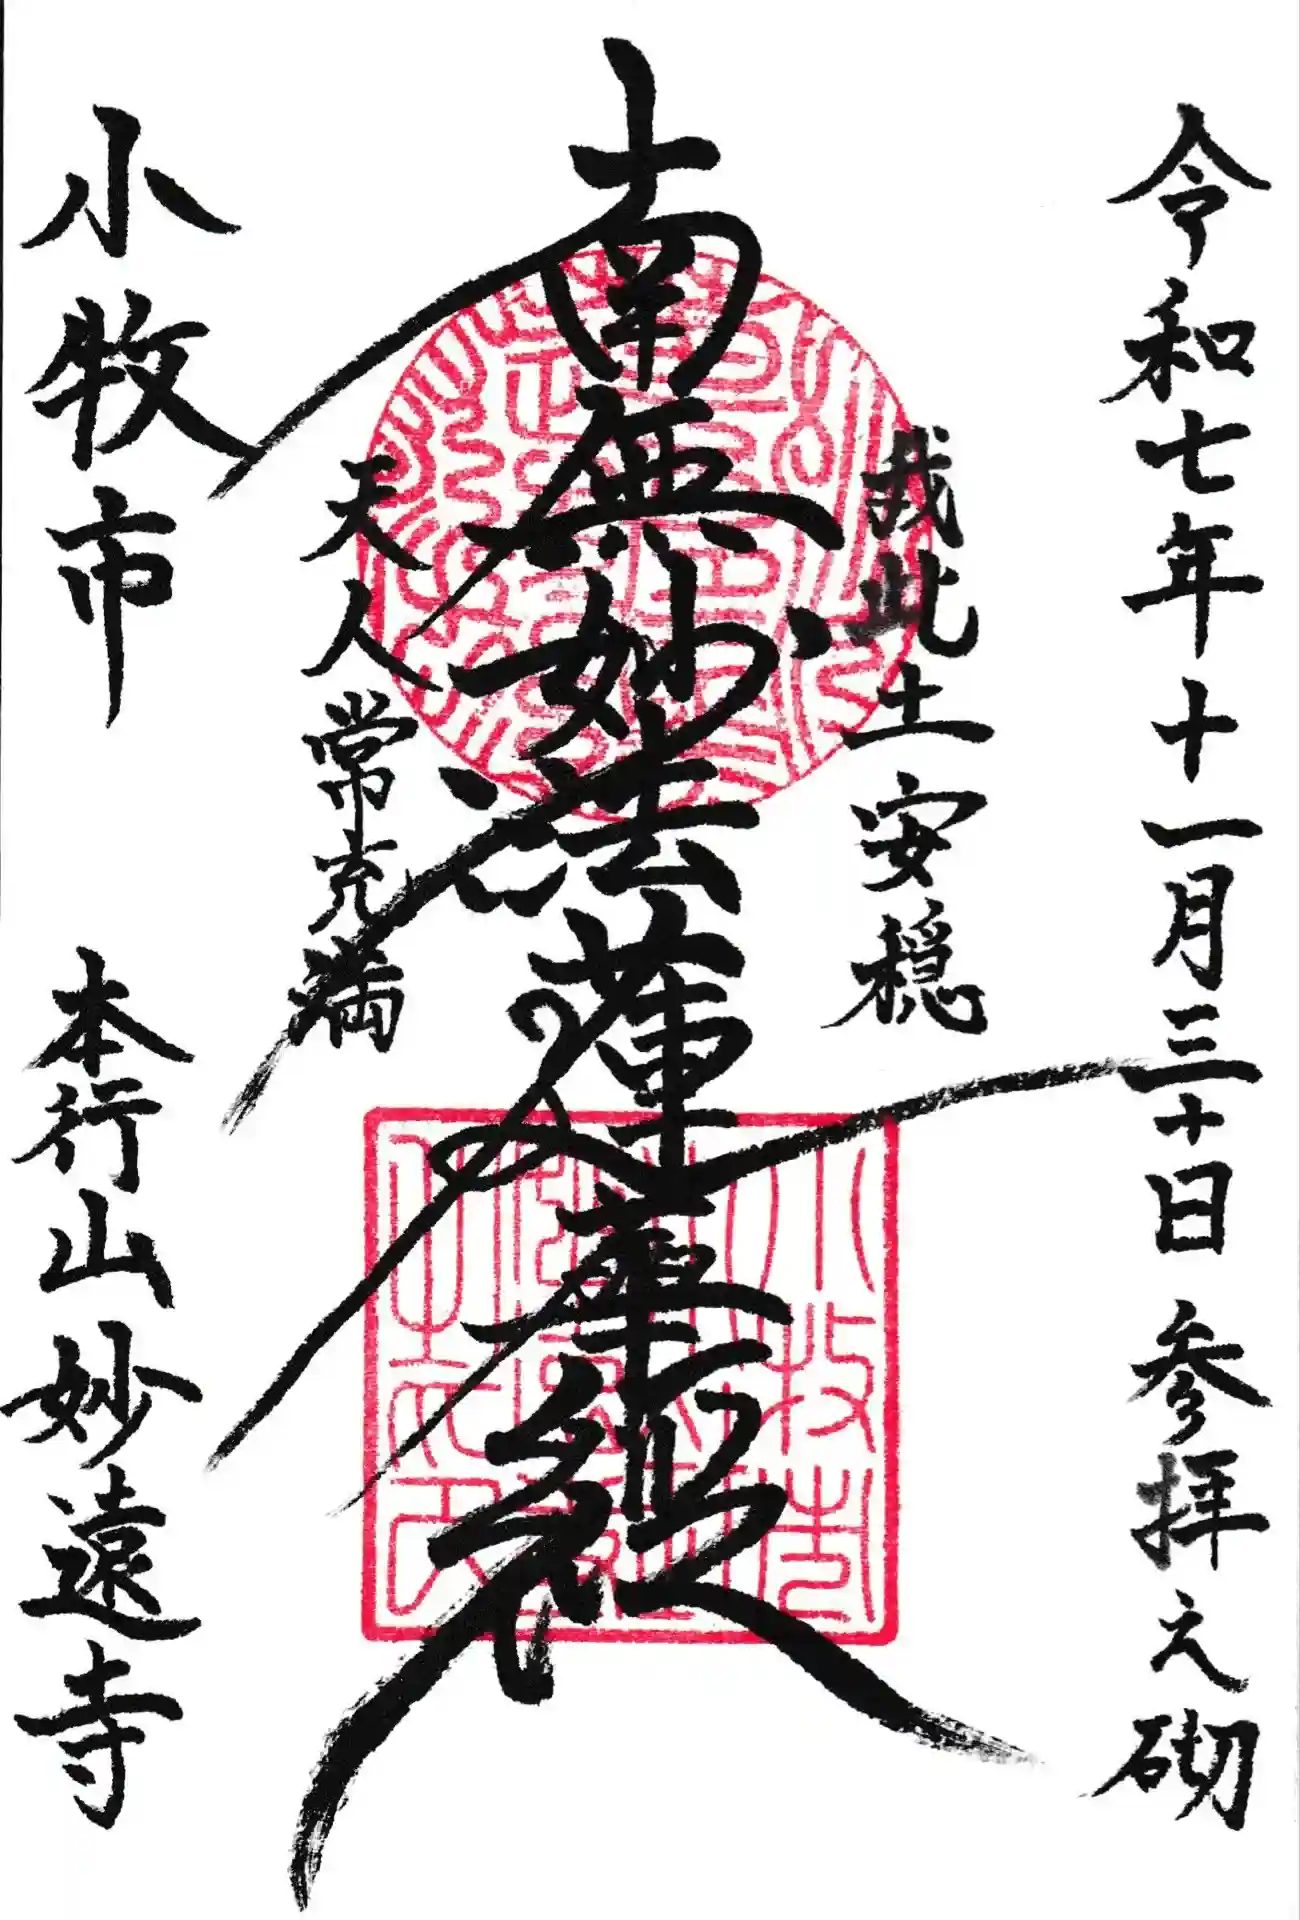 令和七年十一月三十日 参拝之砌
我此土安穏
南無妙法蓮華経
天人常充満
小牧市 本行山妙遠寺